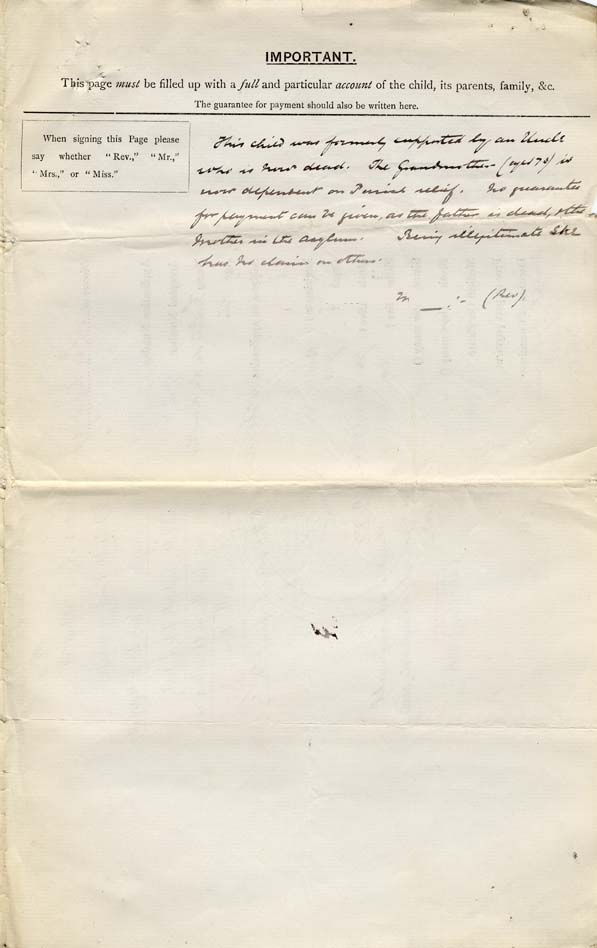 IMPORTANT.
This page must be filled up with a full and particular account of the child, its parents, family, &c.
The guarantee for payment should also be written here.
When signing this Page please
say whether "Rev.," "Mr.,"
"Mrs.," or "Miss."
This child was formerly supported by an Uncle
who is now dead. The Grandmother (aged 73) is
now dependent on Parish relief. No guarantee
for payment can be given, as the father is dead, & the
Mother in the asylum. Being illegitimate She
has no claim on others.
(Rev).